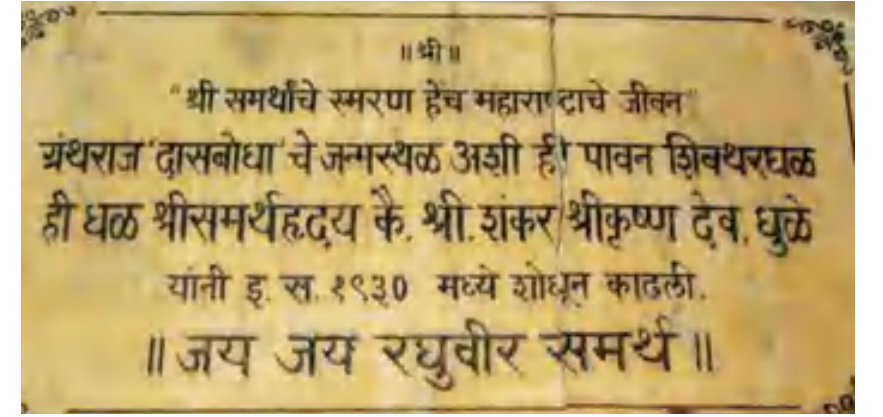 ॥ श्री ॥
"श्री समर्थांचे स्मरण हेंच महाराष्ट्राचे जीवन"
ग्रंथराज 'दासबोधा' चे जन्मस्थळ अशी ही पावन शिवथरघळ
ही घळ श्रीसमर्थहृदय कै. श्री. शंकर श्रीकृष्ण देव, धुळे
यांनी इ. स. १९३० मध्ये शोधून काढली.
॥ जय जय रघुवीर समर्थ ॥